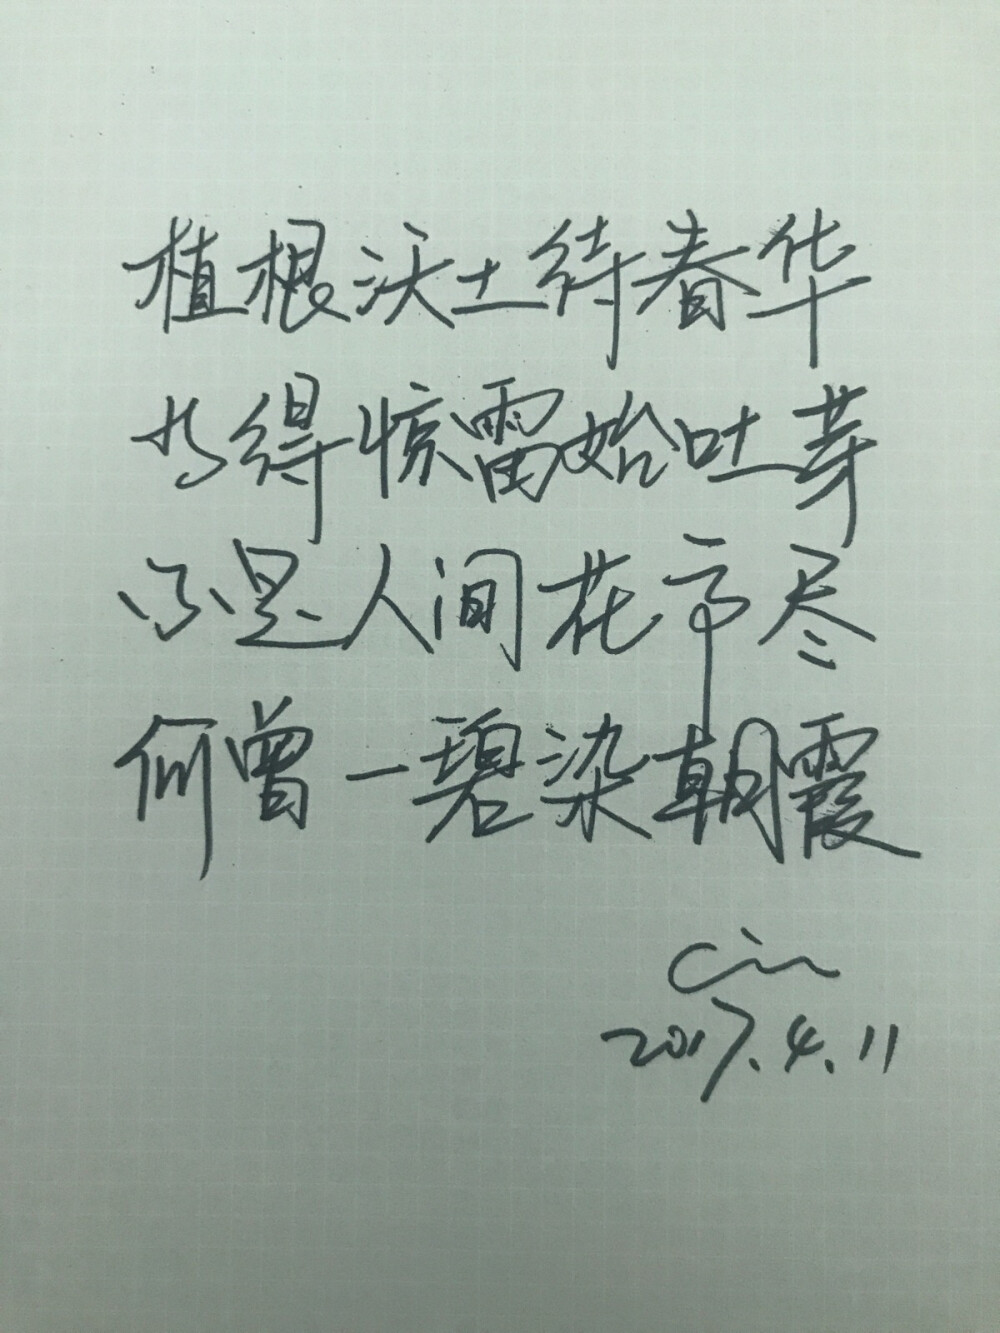 植根沃土待春华
得惊雷始吐芽
不是人间花市尽
何曾一碧染朝霞
2017.4.11